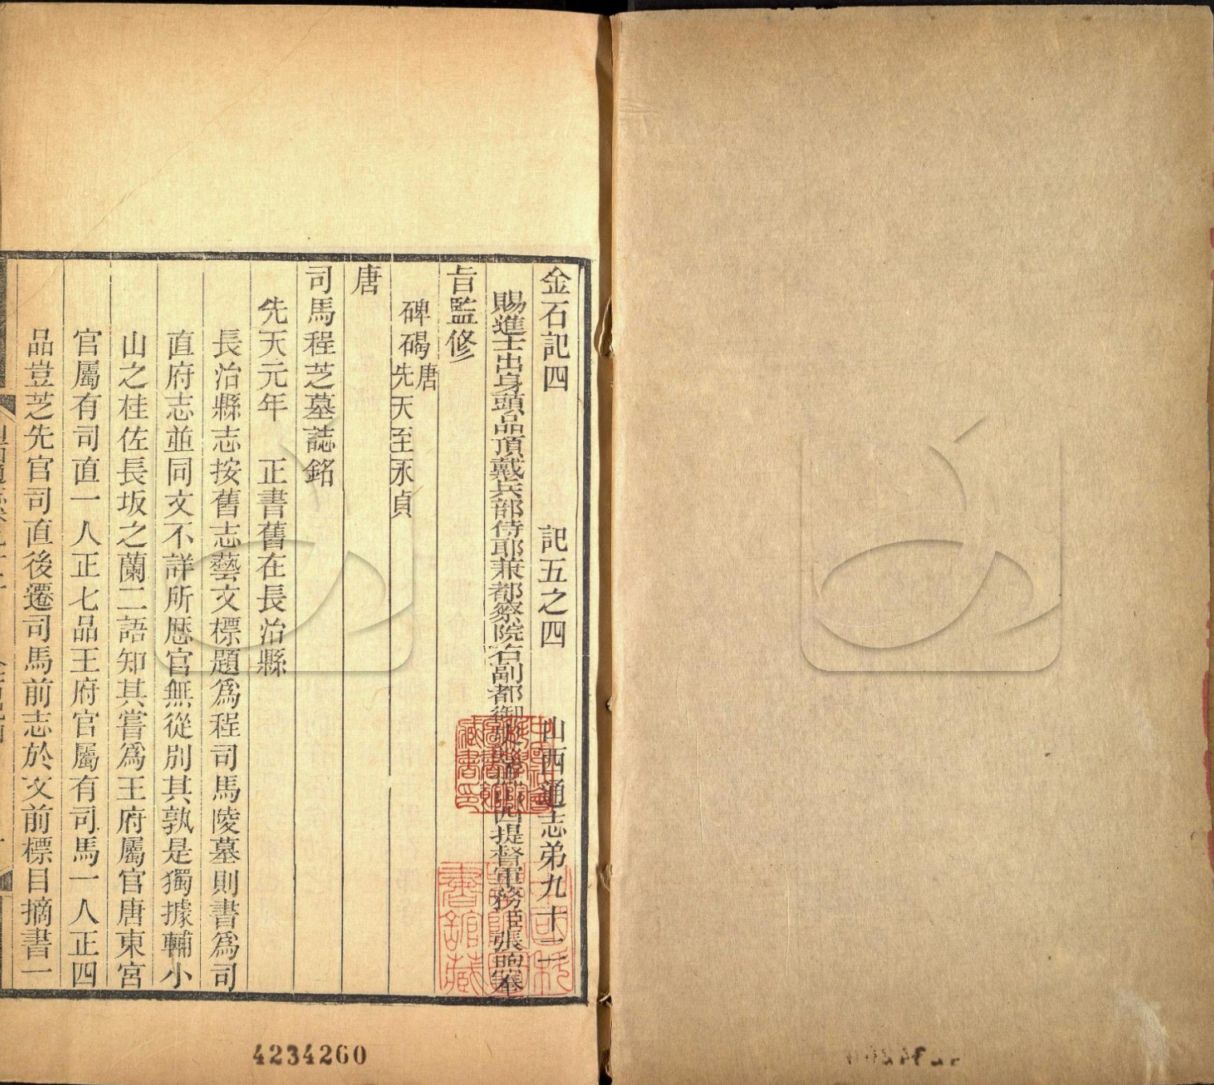 金石記四 記五之四 山西通志弟九十二
賜進士出身頭品頂戴兵部侍郎兼都察院右副都御 西提督軍務 張煦奉
旨監修
碑碣唐先天至永貞
唐
司馬程芝墓誌銘
先天元年 正書舊在長治縣
長治縣志按舊志藝文標題爲程司馬陵墓則書爲司
直府志並同文不詳所歷官無從別其孰是獨據輔小
山之桂佐長坂之蘭二語知其嘗爲王府屬官唐東宮
官屬有司直一人正七品王府官屬有司馬一人正四
品豈芝先官司直後遷司馬前志於文前標目摘書一
4234260